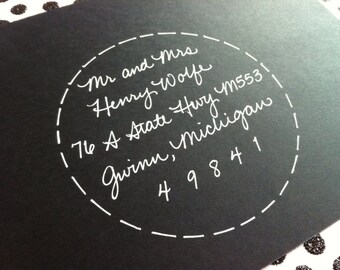 Mr and Mrs
Henry Wolfe
76 A State Hwy M553
Gwinn, Michigan
49841